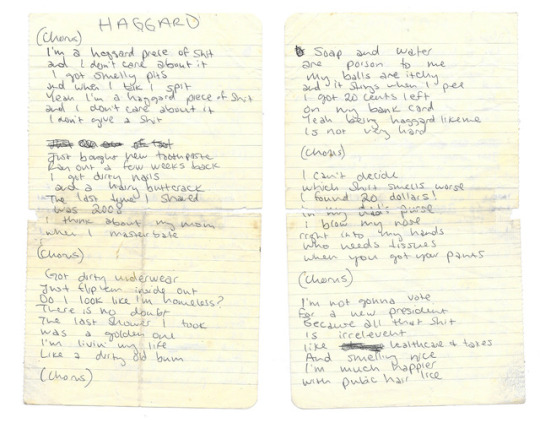 HAGGARD
(Chorus)
I'm a haggard piece of shit
and I don't care about it
I got smelly pits
and when I talk I spit
Yeah I'm a haggard piece of shit
and I don't care about it
I don't give a shit
Just bought new toothpaste
Ran out a few weeks back
I got dirty nails
and a hairy buttcrack
The last time I shaved
was 2008
I think about my mom
when I masterbate
(Chorus)
Got dirty underwear
Just flip em inside out
Do I look like I'm homeless?
There is no doubt
The last shower I took
was a golden one
I'm livin' my life
Like a dirty old bum
(Chorus)
Soap and water
are poison to me
My balls are itchy
and it stings when I pee
I got 20 cents left
on my bank card
Yeah being haggard like me
Is not very hard
(Chorus)
I can't decide
which shit smells worse
I found 20 dollars!
in my purse
I blow my nose
right into my hands
who needs tissues
when you got your pants
(Chorus)
I'm not gonna vote
for a new president
Because all that shit
is irrelevent
like healthcare & taxes
And smelling nice
I'm much happier
with pubic hair lice